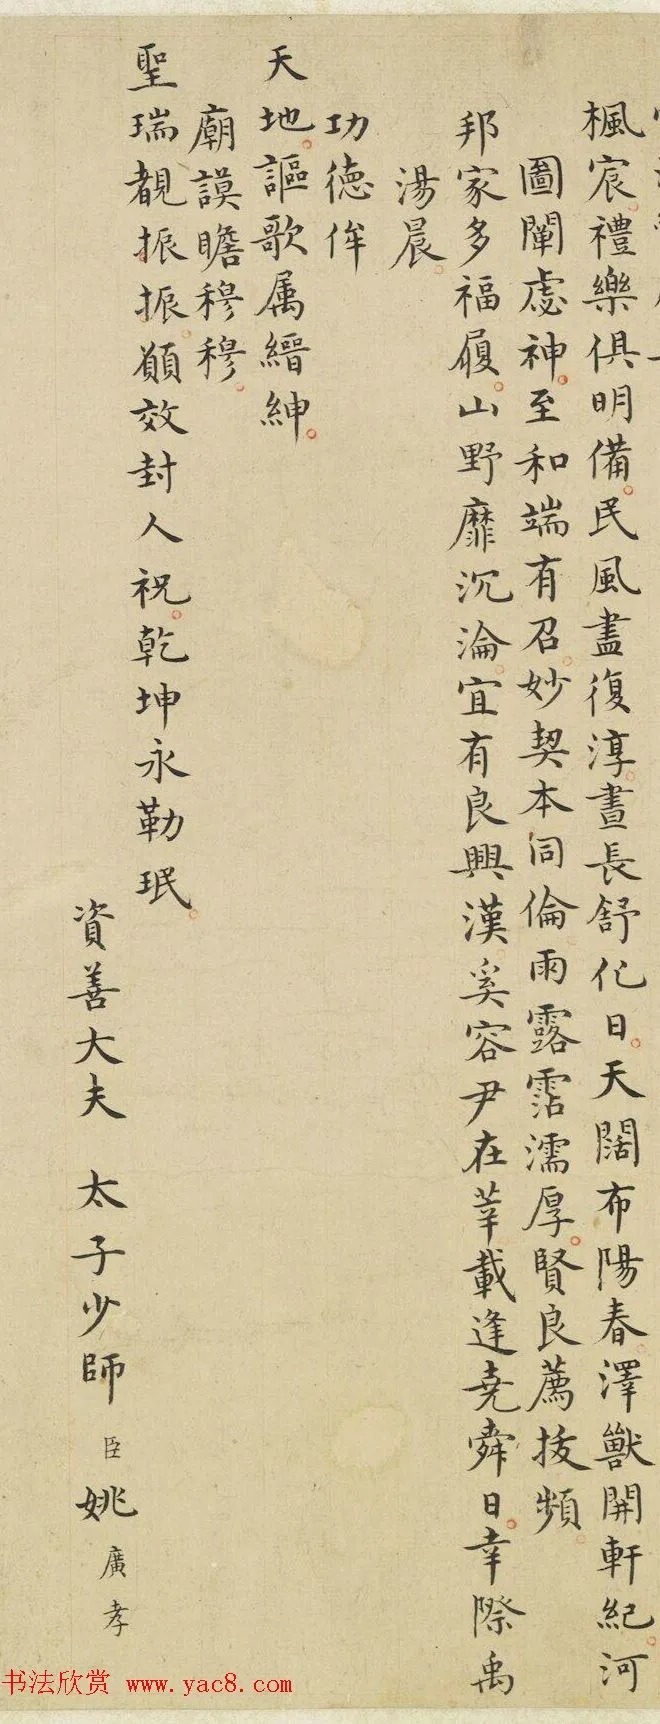 楓宸禮樂俱明備民風盡復淳晝長舒化日天闊布陽春澤獸開軒紀河
圖闡處神至和端有召妙契本同倫雨露霑濡厚賢良薦拔頻
邦家多福履山野靡沉淪宜有良興漢奚容尹在莘載逢堯舜日幸際禹
湯晨
功德侔
天地謳歌属縉紳
廟謨瞻穆穆
聖瑞覩振振願效封人祝乾坤永勒珉
資善大夫 太子少師 臣 姚 廣孝
书法欣赏 www.yac8.com